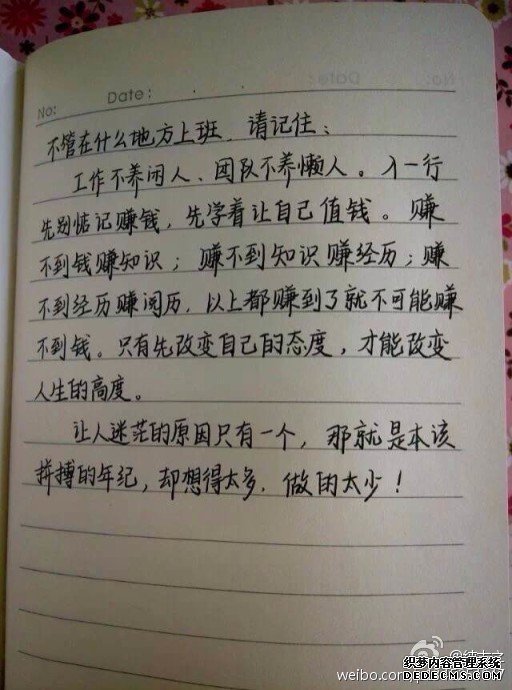 No:
Date:
不管在什么地方上班,请记住:
工作不养闲人、团队不养懒人。入一行
先别惦记赚钱,先学着让自己值钱。赚
不到钱赚知识;赚不到知识赚经历;赚
不到经历赚阅历,以上都赚到了就不可能赚
不到钱。只有先改变自己的态度,才能改变
人生的高度。
让人迷茫的原因只有一个,那就是本该
拼搏的年纪,却想得太多.做的太少!
weibo.com
织梦内容管理系统